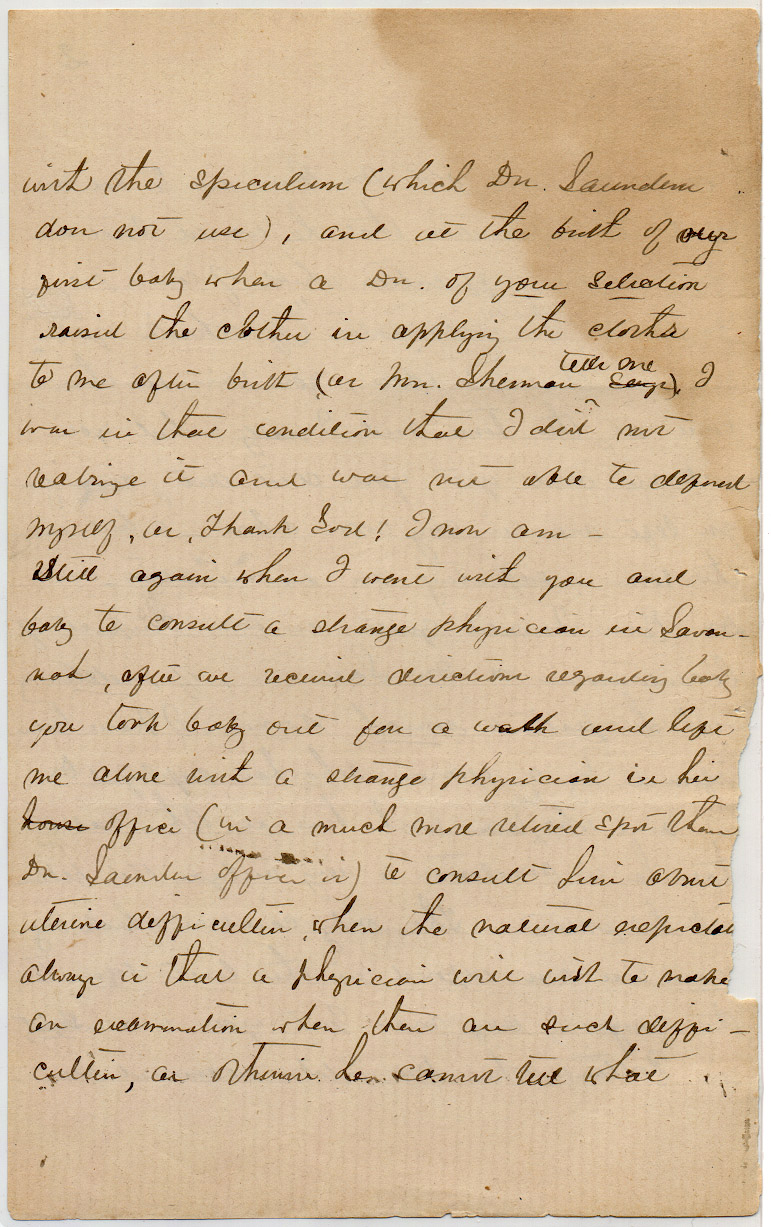 with the speculum (which Dr. Saunders
does not use), and at the birth of our
first baby when a Dr. of your selection
raised the clothes in applying the cloths
to me after birth (as Mrs. Sherman tells me says), I
was in that condition that I did not
realize it and was not able to defend
myself, as, Thank God! I now am –
Still again when I went with you and
baby to consult a strange physician in Savan-
nah, after we received directions regarding baby
you took baby out for a walk and left
me alone with a strange physician in his
house office (in a much more retired spot than
Dr. Saunders office is) to consult him about
uterine difficulties, when the natural expectation
always is that a physician will wish to make
an examination when there are such diffi-
culties, as otherwise he cannot tell what